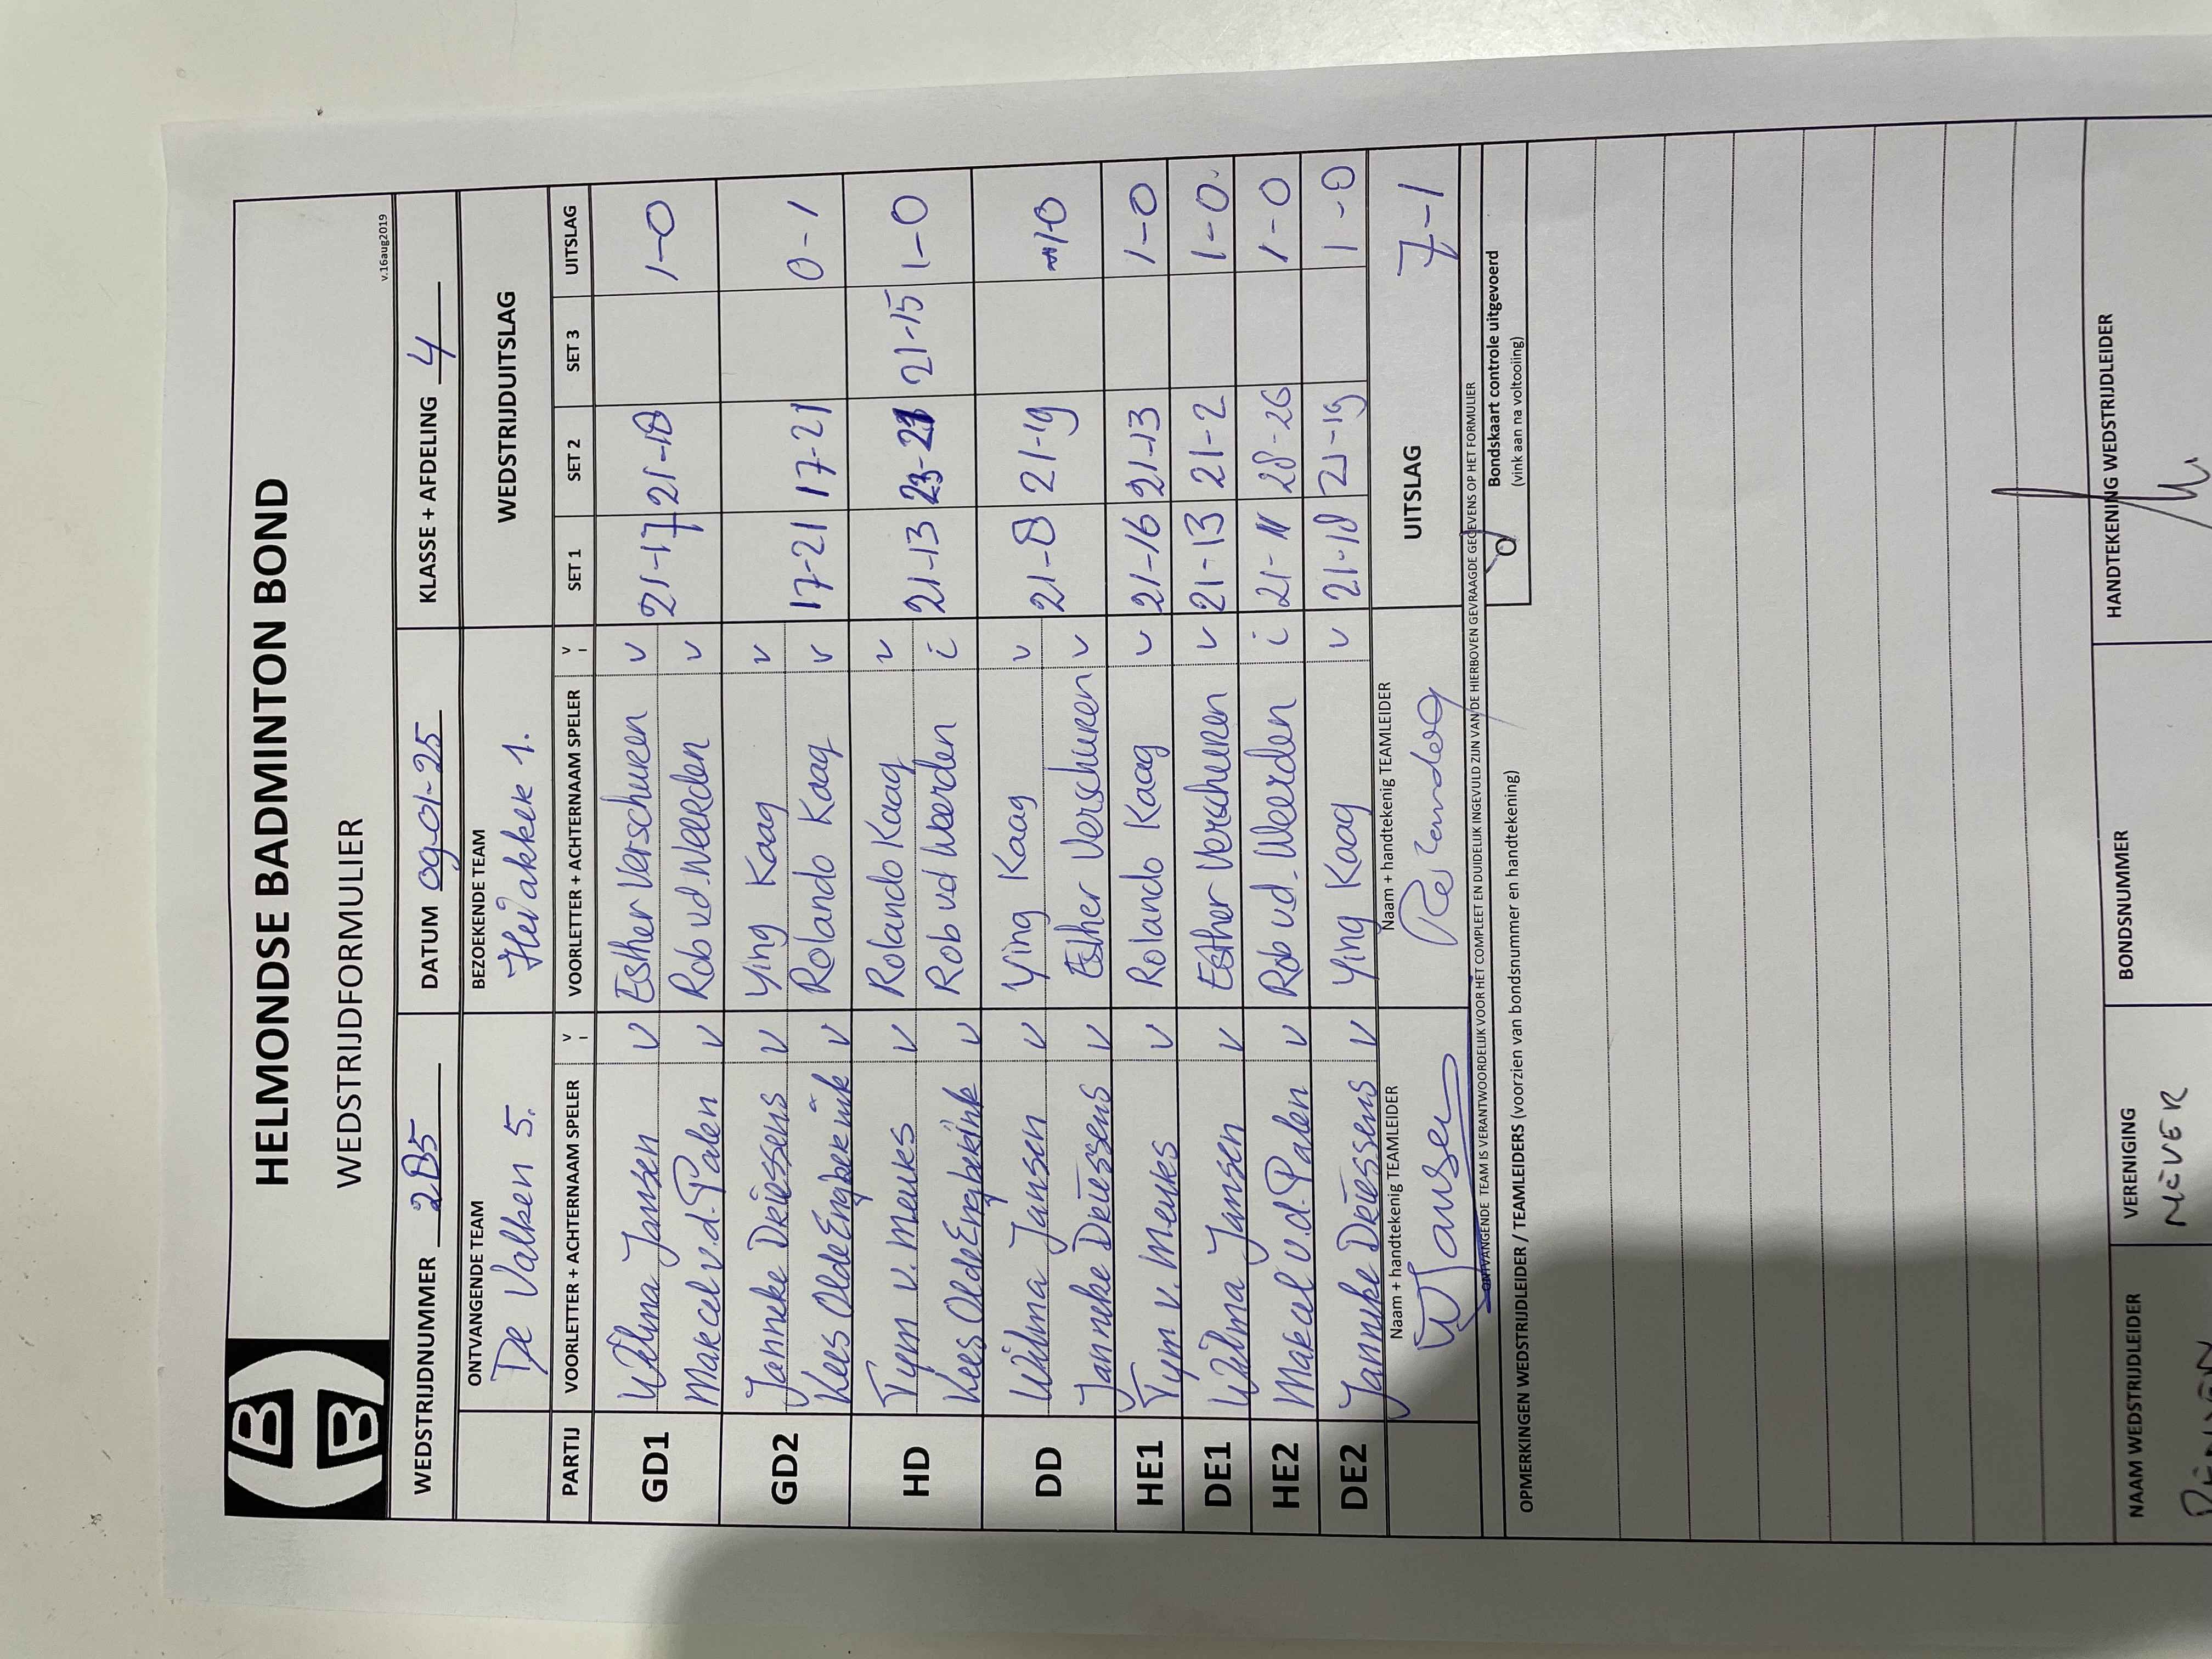 HELMONDSE BADMINTON BOND
WEDSTRIJDFORMULIER
v.16aug2019
WEDSTRIJDNUMMER 2B5 DATUM 09-01-25 KLASSE + AFDELING 4
ONTVANGENDE TEAM BEZOEKENDE TEAM WEDSTRIJDUITSLAG
De Valken 5. Heiakker 1.
PARTIJ VOORLETTER + ACHTERNAAM SPELER V I VOORLETTER + ACHTERNAAM SPELER V I SET 1 SET 2 SET 3 UITSLAG
GD1 Wilma Jansen v Esther Verschuren v 21-17 21-18 1-0
Marcel v.d. Palen v Rob vd. Weerden v
GD2 Janneke Driessens v Ying Kaag v 17-21 17-21 0-1
Kees Olde Engberink v Rolando Kaag v
HD Tym v. Meuks v Rolando Kaag v 21-13 23-21 21-15 1-0
Kees Olde Engberink v Rob vd Weerden i
DD Wilma Jansen v Ying Kaag v 21-8 21-19 1-0
Janneke Driessens v Esther Verschuren v
HE1 Tym v. Meuks v Rolando Kaag v 21-16 21-13 1-0
DE1 Wilma Jansen v Esther Verschuren v 21-13 21-2 1-0
HE2 Marcel v.d. Palen v Rob vd. Weerden i 21-11 28-26 1-0
DE2 Janneke Driessens v Ying Kaag v 21-18 21-19 1-0
Naam + handtekenig TEAMLEIDER Naam + handtekenig TEAMLEIDER UITSLAG 7-1
WJansen
ONTVANGENDE TEAM IS VERANTWOORDELIJK VOOR HET COMPLEET EN DUIDELIJK INGEVULD ZIJN VAN DE HIERBOVEN GEVRAAGDE GEGEVENS OP HET FORMULIER
Bondskaart controle uitgevoerd
(vink aan na voltooiing)
OPMERKINGEN WEDSTRIJDLEIDER / TEAMLEIDERS (voorzien van bondsnummer en handtekening)
NAAM WEDSTRIJDLEIDER VERENIGING BONDSNUMMER HANDTEKENING WEDSTRIJDLEIDER
MEVER